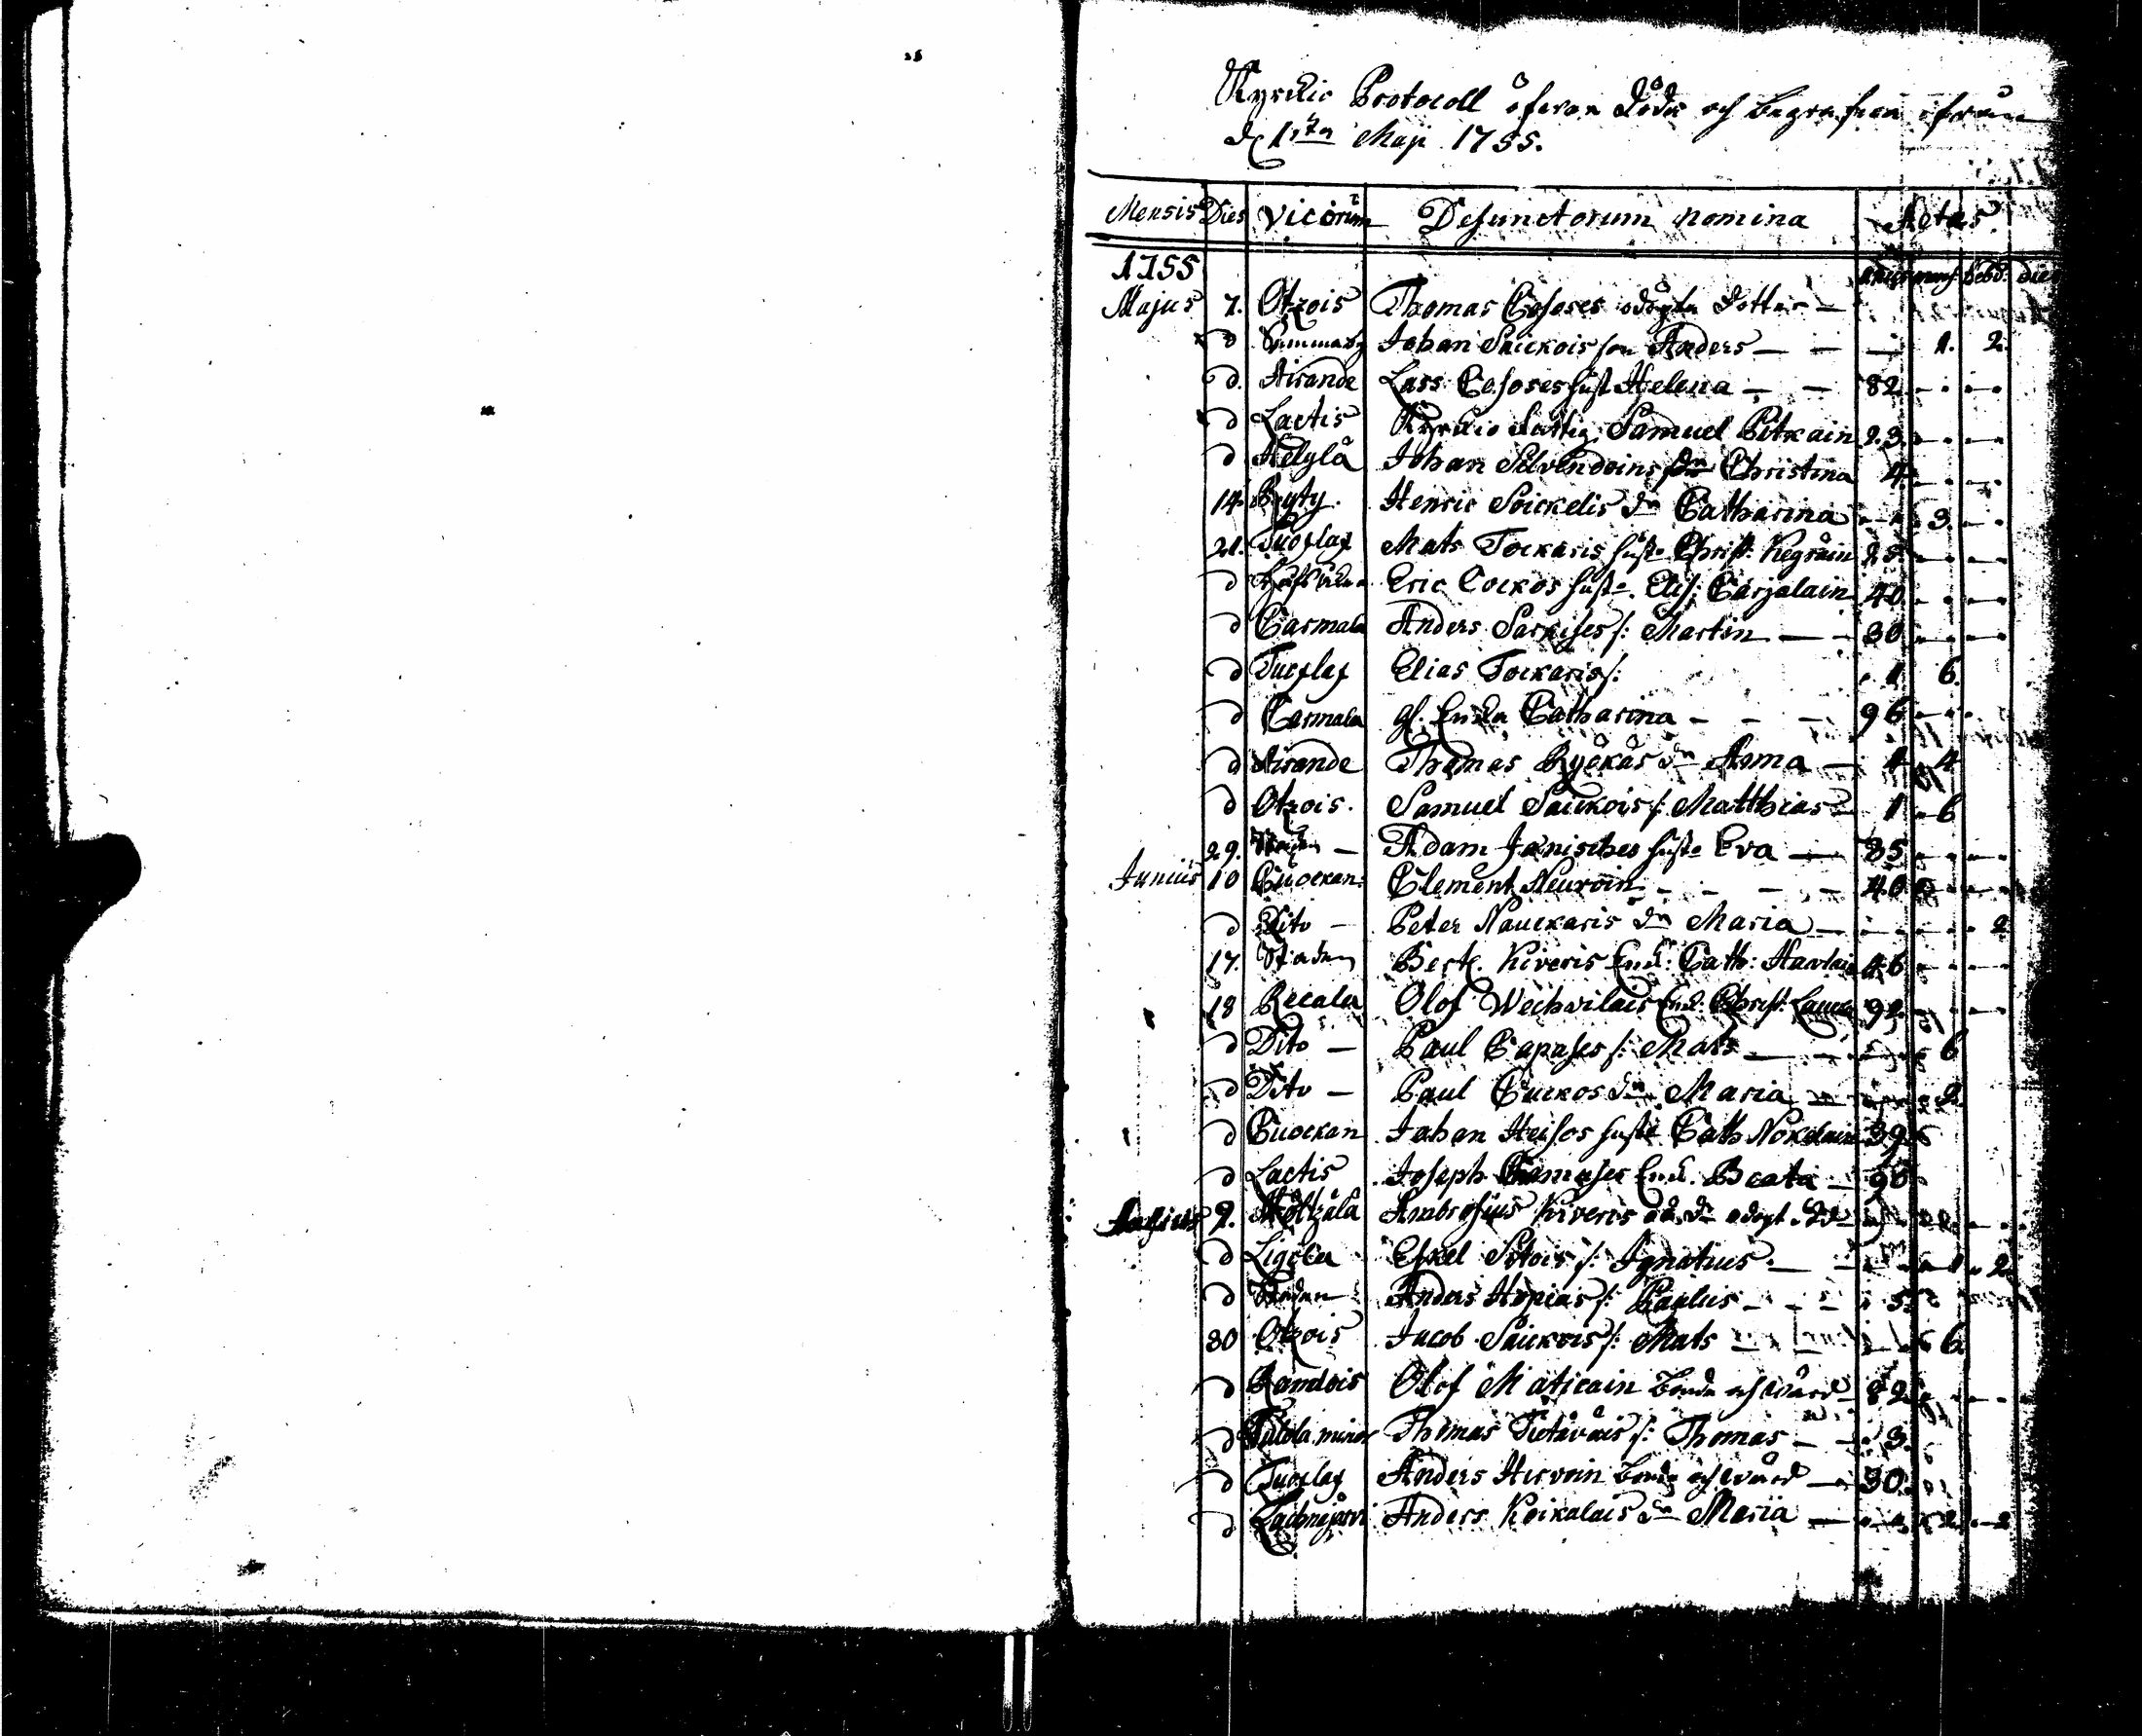 Kyrckio Protocoll öfwer Döde och begrafne ifrån
d 1sta Maji 1755.
Mensis Dies Vicorum Defunctorum nomina Aetas.
1755 annus mens. hebd. dies
Majus 7. Otzois Thomas Cososes odöpta dotter —
d Summaby Johan Saickois son Anders — — — 1. 2.
d. Airande Lars Cososes hust Helena — — 82
d Lactis Kyrckio fattig Samuel Pitkain 23
d Hälylä Johan Silvendoins dr Christina 4
14 Pyyty. Henric Soickelis dr Catharina 3.
21. Tuoslaf Mats Tockaris hust. Christ: Kegräin 25
d Eric Cockos hust. Elis: Carjalain 40
d Carmala Anders Parkises s: Martin — 30
d Tuoslaf Elias Tockaris s: 1 6.
d Carmala gl. Enka Catharina — — — 96
d Airande Thomas Ryökäs dr Anna — 1 4
d Otzois. Samuel Saickois s: Matthias 1 6
29. Staden — Adam Jänisches hust. Eva — 35
Junius 10 Cuockan: Clement Neuvoin — — — 40
d Dito — Peter Nauckaris dr Maria — 2
17. Staden Bert. Kiveris Enk: Cath: Havelain 46
18 Recala Olof Wechvilais Enk. Christ: 92
d Dito — Paul Capases s: Mats — 6
d Dito — Paul Cuckos dr Maria — 2
d Cuockan Johan Heisos hust Cath 39
d Lactis Joseph Enk. Beata — 90
Julius 2. Möltzälä Ambrosius Kiveris
d Ligola Eskel Sitois s: Ignatius — 1 2
d Staden Anders Hopias s: Paulus — — — 5
30 Otzois Jacob Saickois s: Mats — 6
d Randois Olof Maticain Bonde och wärd 82
d Talola minor Thomas Tietäväis s: Thomas — 3.
d Tuoslaf Anders Hirvoin Bonde och wärd — 30
d Lachnajärvi Anders Koikalais dr Maria — 2 2